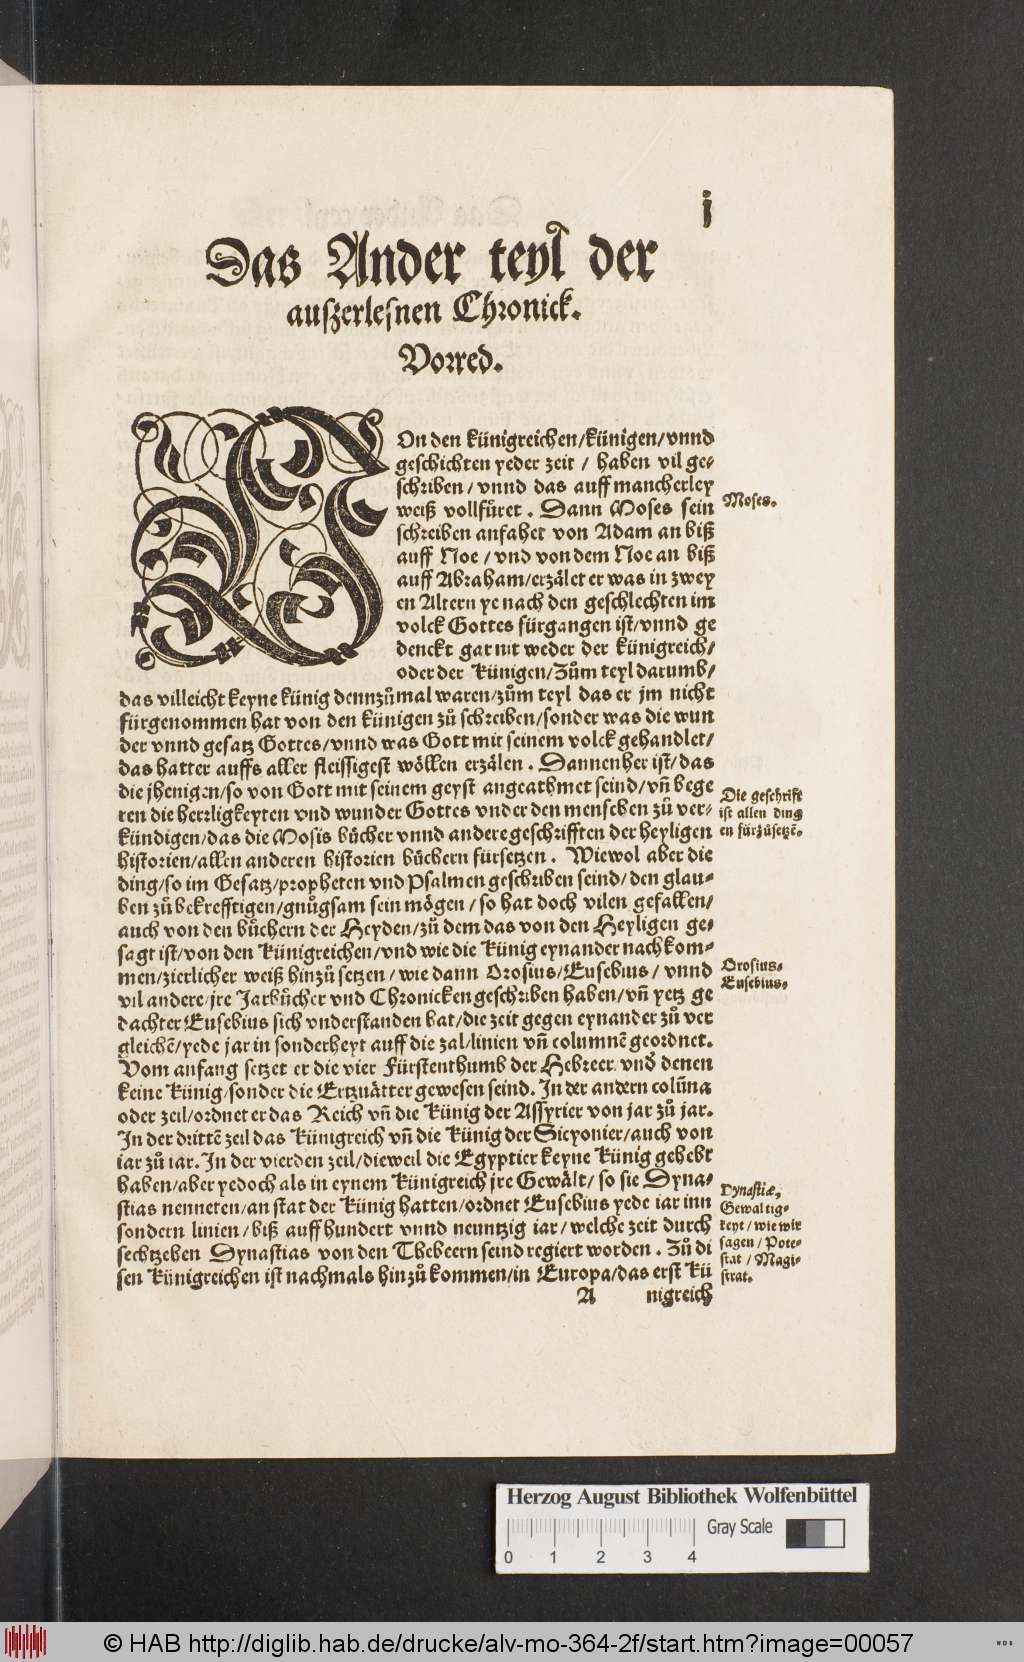 j
Das Ander teyl der
auſzerleſnen Chronick.
Vorred.
VOn den künigreichen/künigen/vnnd
geſchichten yeder zeit / haben vil ge-
ſchriben / vnnd das auff mancherley
weiß vollfuͤret. Dann Moſes ſein
ſchreiben anfahet von Adam an biß
auff Noe / vnd von dem Noe an biß
auff Abraham/erzaͤlet er was in zwey
en Altern ye nach den geſchlechten im
volck Gottes fürgangen iſt/vnnd ge
denckt gar nit weder der künigreich/
oder der Künigen/Zům teyl darumb/
das villeicht keyne künig dennzůmal waren/zům teyl das er jm nicht
fürgenommen hat von den künigen zů ſchreiben/ſonder was die wun
der vnnd geſatz Gottes/vnnd was Gott mit ſeinem volck gehandlet/
das hatter auffs aller fleiſſigeſt woͤllen erzaͤlen. Dannenher iſt/das
die jhenigen/ſo von Gott mit ſeinem geyſt angeathmet ſeind/vñ bege
ren die herrligkeyten vnd wunder Gottes vnder den menſchen zů ver-
kündigen/das die Moſis buͤcher vnnd andere geſchrifften der heyligen
hiſtorien/allen anderen hiſtorien buͤchern fürſetzen. Wiewol aber die
ding/ſo im Geſatz/propheten vnd Pſalmen geſchriben ſeind/den glau-
ben zů bekrefftigen/gnůgſam ſein moͤgen/ſo hat doch vilen gefallen/
auch von den buͤchern der Heyden/zů dem das von den Heyligen ge-
ſagt iſt/von den Künigreichen/vnd wie die Künig eynander nachkom-
men/zierlicher weiß hinzů ſetzen/wie dann Oroſius/Euſebius/vnnd
vil andere/jre Jarbuͤcher vnd Chronicken geſchriben haben/vñ yetz ge
dachter Euſebius ſich vnderſtanden hat/die zeit gegen eynander zů ver
gleichẽ/yede jar in ſonderheyt auff die zal/linien vñ columnẽ geordnet.
Vom anfang ſetzet er die vier Fürſtenthumb der Hebreer/vnd denen
keine Künig/ſonder die Ertzuaͤtter geweſen ſeind. In der andern colũna
oder zeil/ordnet er das Reich vñ die Künig der Aſſyrier von jar zů jar.
In der drittẽ zeil das Künigreich vñ die Künig der Sicyonier/auch von
iar zů iar. In der vierden zeil/dieweil die Egyptier keyne Künig gehebt
haben/aber yedoch als in eynem Künigreich jre Gewaͤlt/ſo ſie Dyna-
ſtias nenneten/an ſtat der Künig hatten/ordnet Euſebius yede iar inn
ſondern linien/biß auff hundert vnnd neuntzig iar/welche zeit durch
ſechtzehen Dynaſtias von den Thebeern ſeind regiert worden. Zů di
ſen Künigreichen iſt nachmals hinzů kommen/in Europa/das erſt Kü
A nigreich
Moſes.
Die geſchrift
iſt allen ding
en fürzůſetzẽ.
Oroſius.
Euſebius.
Dynaſtiæ,
Gewaltig-
keyt/wie wir
ſagen/Pote-
ſtat/Magi-
ſtrat.
Herzog August Bibliothek Wolfenbüttel
Gray Scale
0 1 2 3 4
© HAB http://diglib.hab.de/drucke/alv-mo-364-2f/start.htm?image=00057